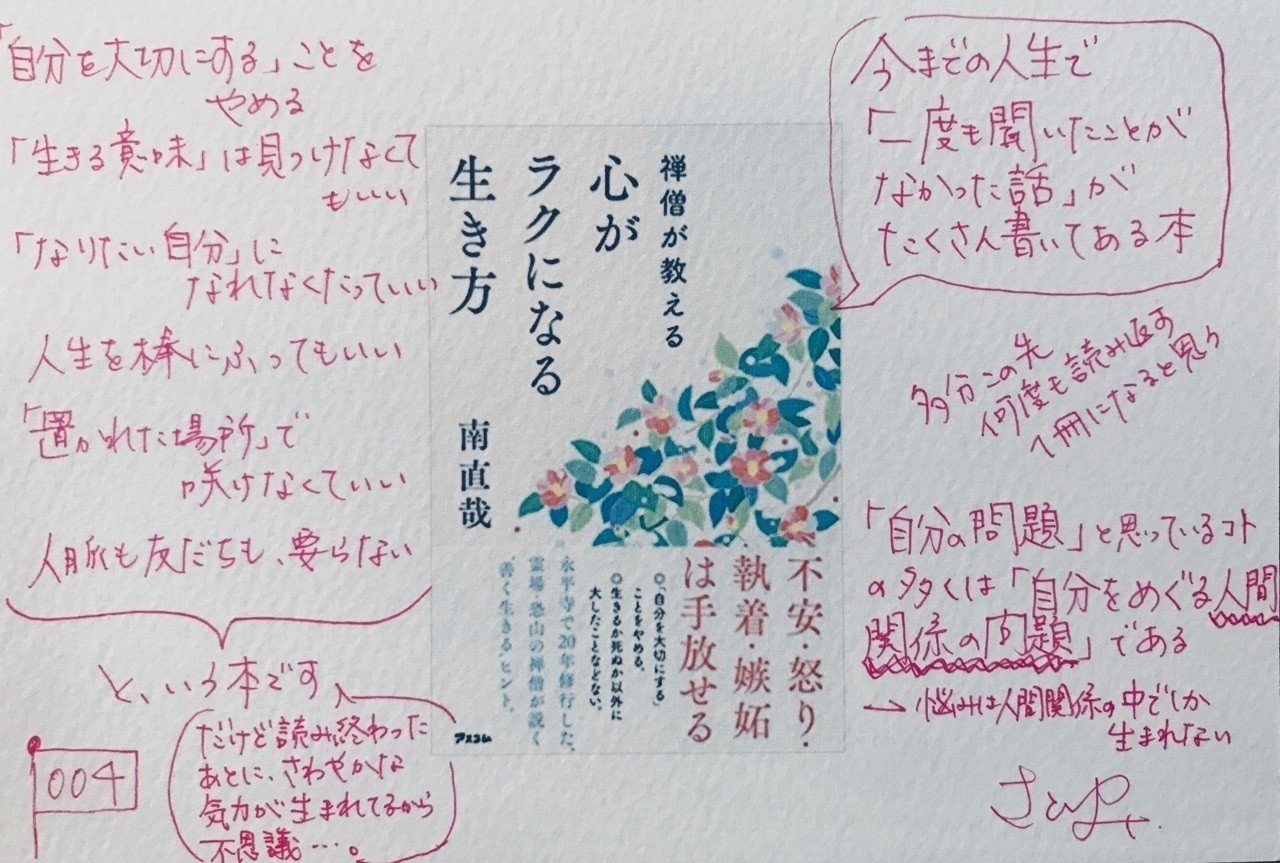 「自分を大切にする」ことを
やめる
「生きる意味」は見つけなくて
もいい
「なりたい自分」に
なれなくたっていい
人生を棒にふってもいい
「置かれた場所」で
咲けなくていい
人脈も友だちも、要らない
と、いう本です
だけど読み終わった
あとに、さわやかな
気力が生まれてるから
不思議…。
004
禅僧が教える
心が
ラクになる
生き方
南直哉
不安・怒り・
執着・嫉妬
は手放せる
◎「自分を大切にする」
ことをやめる。
◎生きるか死ぬか以外に
大したことなどない。
永平寺で20年修行した、
霊場 恐山の禅僧が説く
善く生きるヒント。
アスコム
今までの人生で
「一度も聞いたことが
なかった話」が
たくさん書いてある本
多分この先
何度も読み返す
1冊になると思う
「自分の問題」と思っているコト
の多くは「自分をめぐる人間
関係の問題」である
→悩みは人間関係の中でしか
生まれない